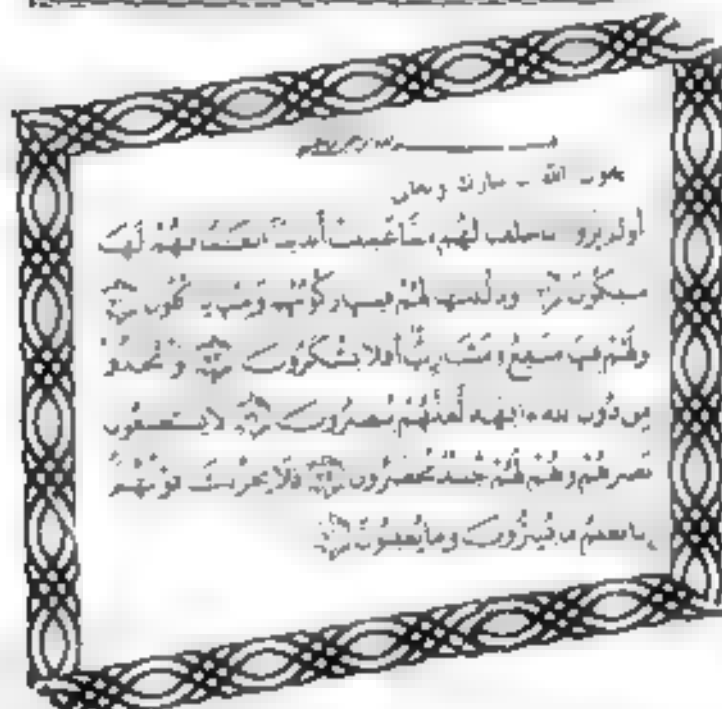 بسم الله الرحمن الرحيم
يقول الله تبارك وتعالى
أولم يروا أنا خلقنا لهم مما عملت أيدينا أنعاما فهم لها
مالكون وذللناها لهم فمنها ركوبهم ومنها يأكلون
ولهم فيها منافع ومشارب أفلا يشكرون واتخذوا
من دون الله آلهة لعلهم ينصرون لا يستطيعون
نصرهم وهم لهم جند محضرون فلا يحزنك قولهم
إنا نعلم ما يسرون وما يعلنون